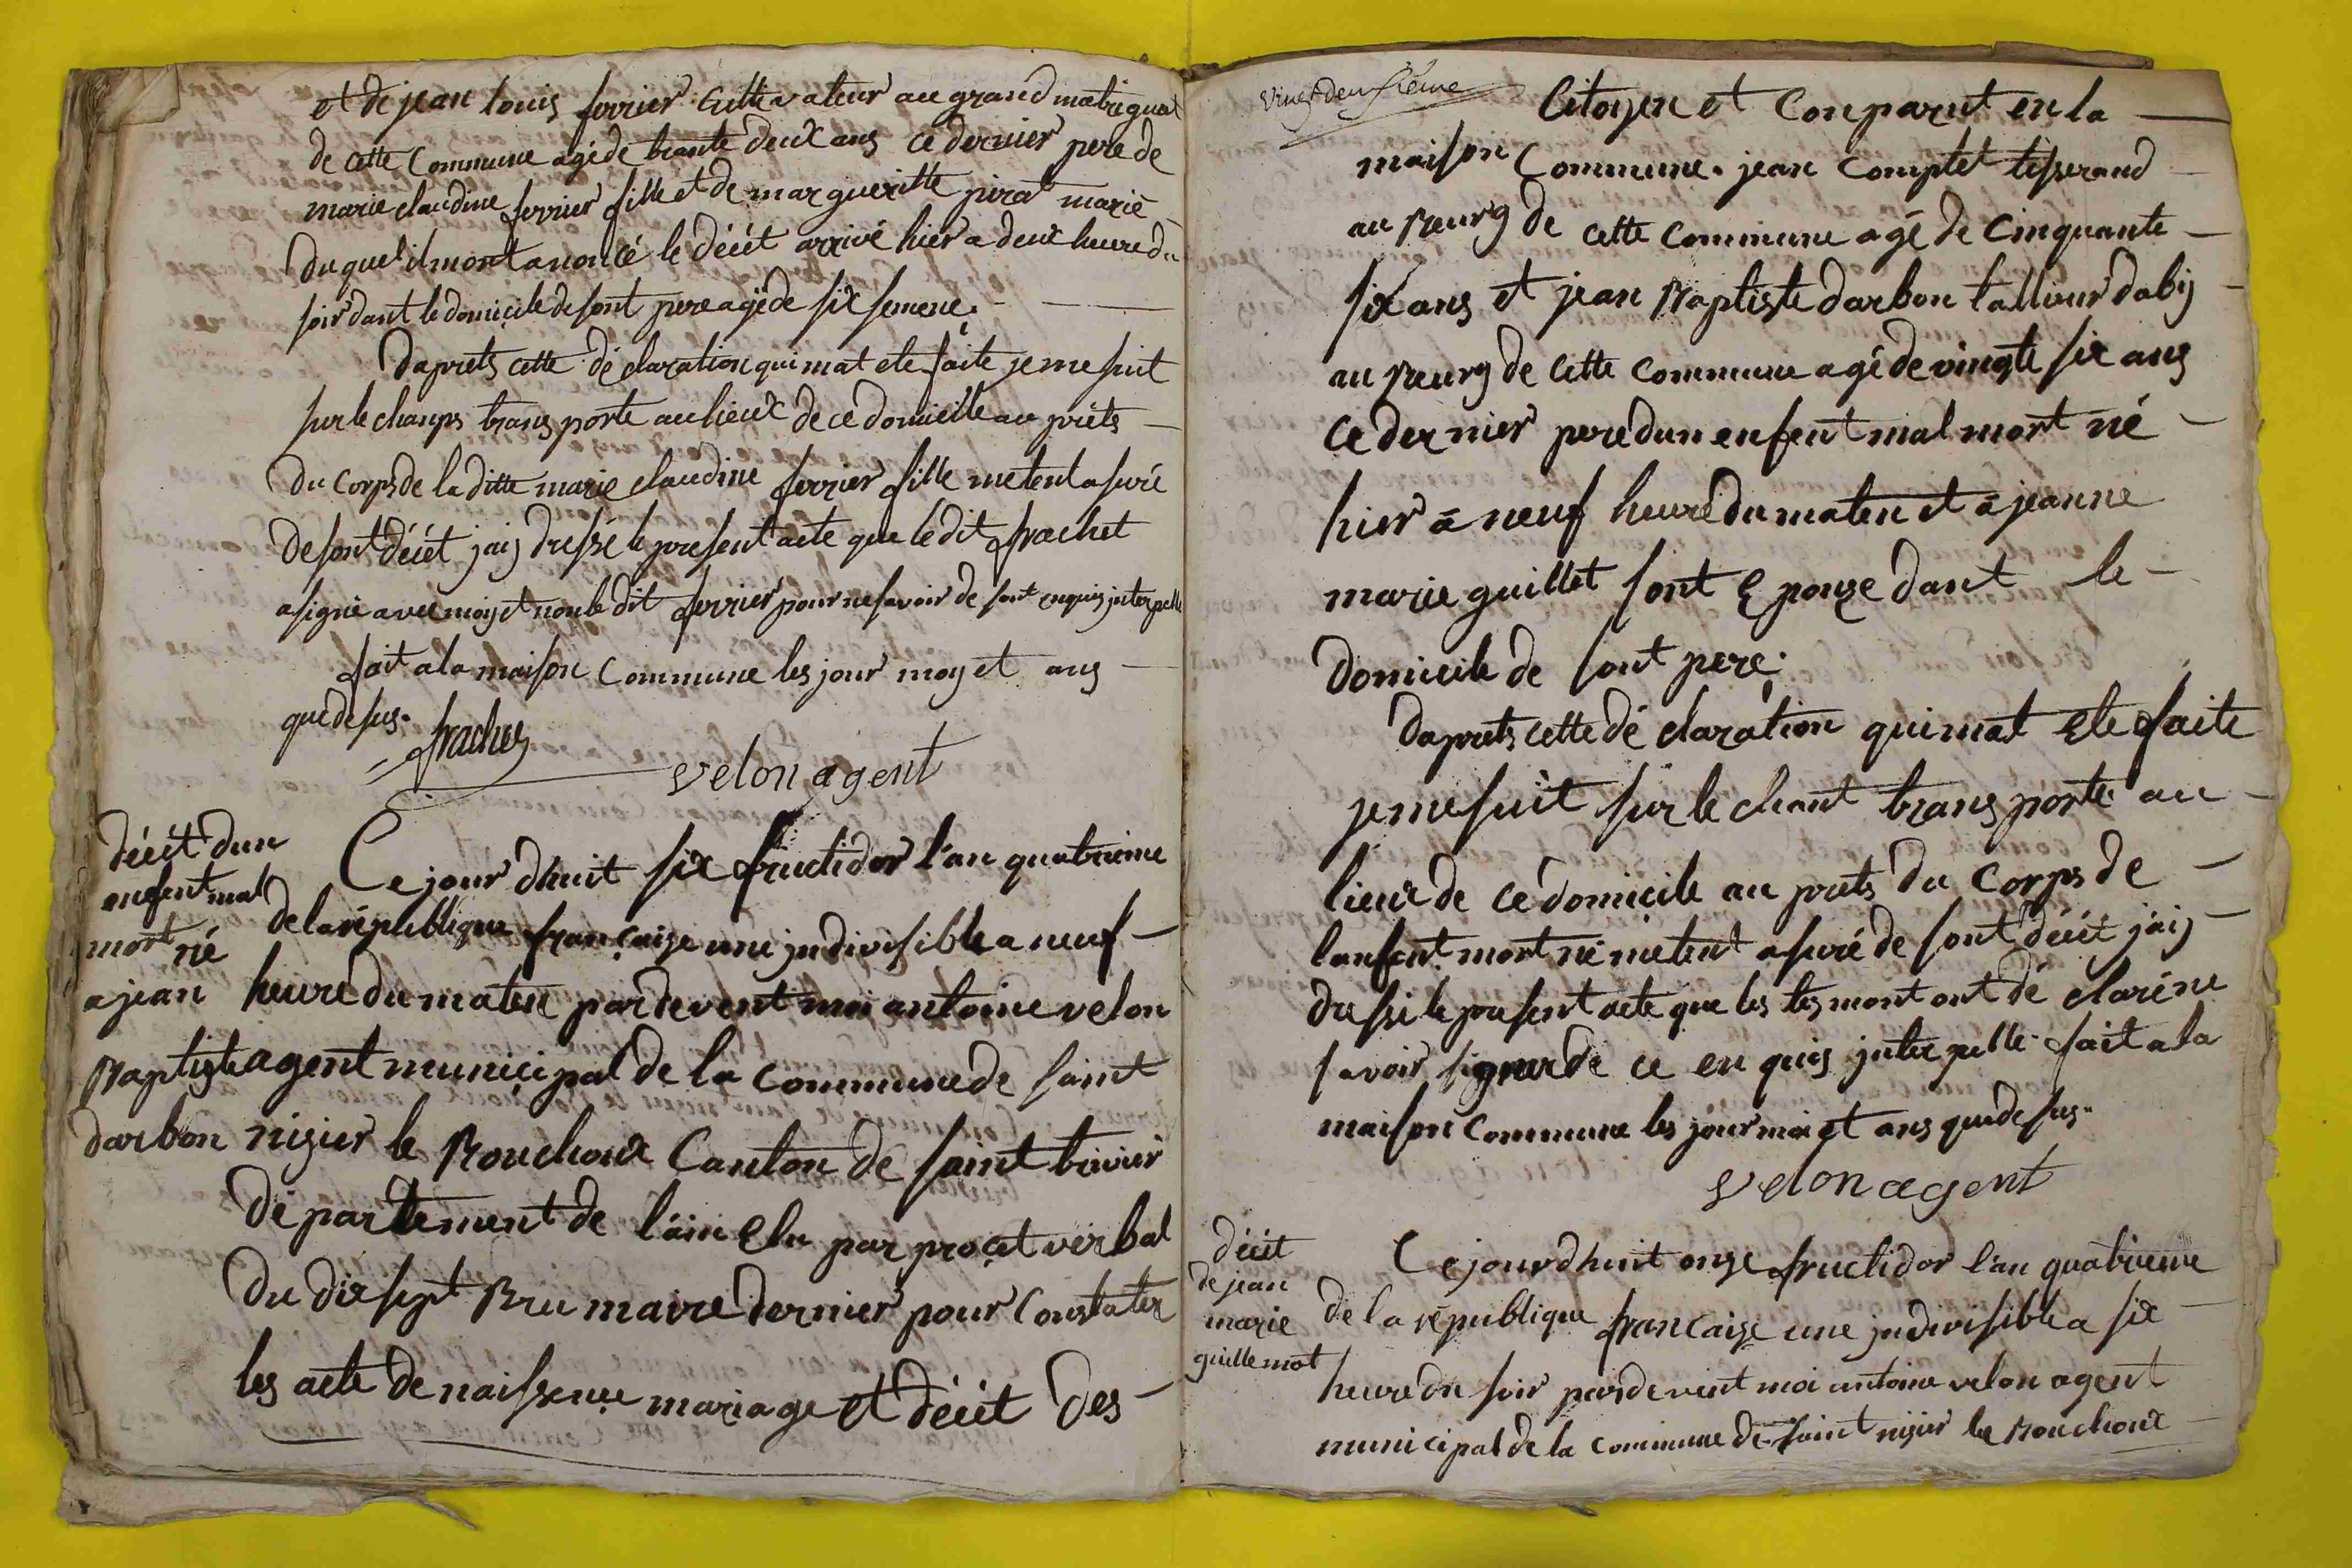 et de jean louis ferrier Cultivateur au grand matrignat
de cette Commune agé de trante deux ans ce dernier pere de
marie claudine ferrier fille et de marguerite pirat marié
duquel il mont anoncé le décét arrivé hier a deux heure du
soir dant le domicile de sont pere agé de six semene.
Daprets cette déclaration qui mat ete faite je me suit
sur le champs transporte au lieux de ce domicille au préts
du Corps de la ditte marie claudine ferrier fille metent asuré
de sont décét jaij dressé le present acte que le dit frachet
a signé avec moij et non le dit ferrier pour ne savoir de sont enquis jnterpellé
fait a la maison Commune les jour moy et ans
que desus.
frachet
velon agent
décét dun
enfent mal
mort né
a jean
Baptiste
darbon
Ce jour dhuit six fructidor l'an quatrieme
de la république française une jndivisible a neuf
heure du maten par devent moi antoine velon
agent municipal de la commune de saint
nisier le Bouchoux Canton de saint trivier
département de l'ain elu par procet verbal
du dix sept Brumaire dernier pour Constater
les acte de naissence mariage et décét des
vingt deuxiéme
Citoyen et Conparut en la
maison Commune. jean Comptet tisserand
au Bourg de cette commune agé de Cinquante
six ans et jean Baptiste darbon tallieur dabij
au Bourg de cette commune agé de vingte six ans
ce dernier pere dun enfent mal mort né
hier à neuf heure du maten et à jeanne
marie guillet sont epouze dant le
domicile de sont pere.
Daprets cette déclaration qui mat ete faite
je me suit sur le chant transporte au
lieux de ce domicile au prets du Corps de
lanfent mort né metent asuré de sont décét j'aij
dressé le present acte que les tesmont ont dé claréne
savoir signer de ce en quis jnterpellé fait a la
maison commune les jour moi et ans que desus.
velon agent
décét
de jean
marie
guillemot
Ce jourdhuit onze fructidor l'an quatrieme
de la république francaize une jndivisible a six
heure du soir par devent moi antoine velon agent
municipal de la commune de saint nisier le Bouchoux